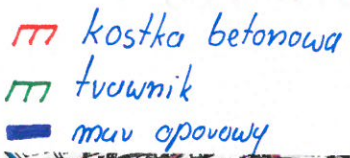 kostka betonowa
trawnik
mur oporowy